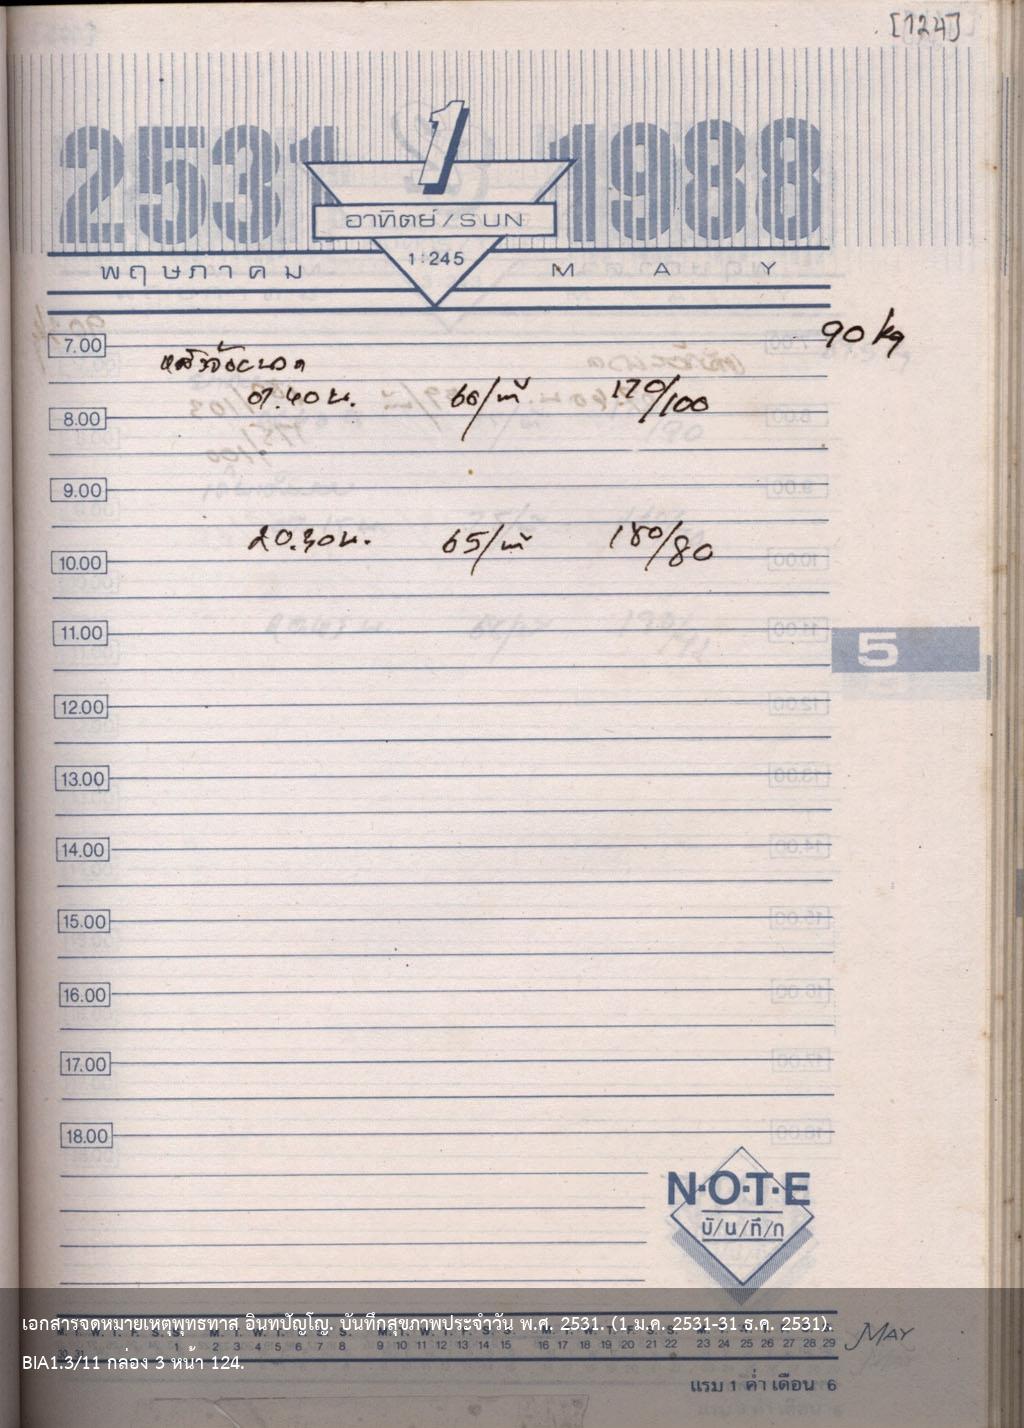 [124]
2531 1 1988
อาทิตย์/SUN
1:245
พฤษภาคม MAY
90 kg
7.00
07.40 น. 66/ที 170/100
8.00
9.00
20.30 น. 65/ที 180/80
10.00
11.00
5
12.00
13.00
14.00
15.00
16.00
17.00
18.00
N·O·T·E
บั/น/ทึ/ก
เอกสารจดหมายเหตุพุทธทาส อินทปัญโญ. บันทึกสุขภาพประจำวัน พ.ศ. 2531. (1 ม.ค. 2531-31 ธ.ค. 2531).
M. T. W. T. F. S. S.
30 31 1 2 3 4 5 6 7 8 9 10 11 12 13 14 15 16 17 18 19 20 21 22 23 24 25 26 27 28 29
MAY
BIA1.3/11 กล่อง 3 หน้า 124.
แรม 1 ค่ำ เดือน 6